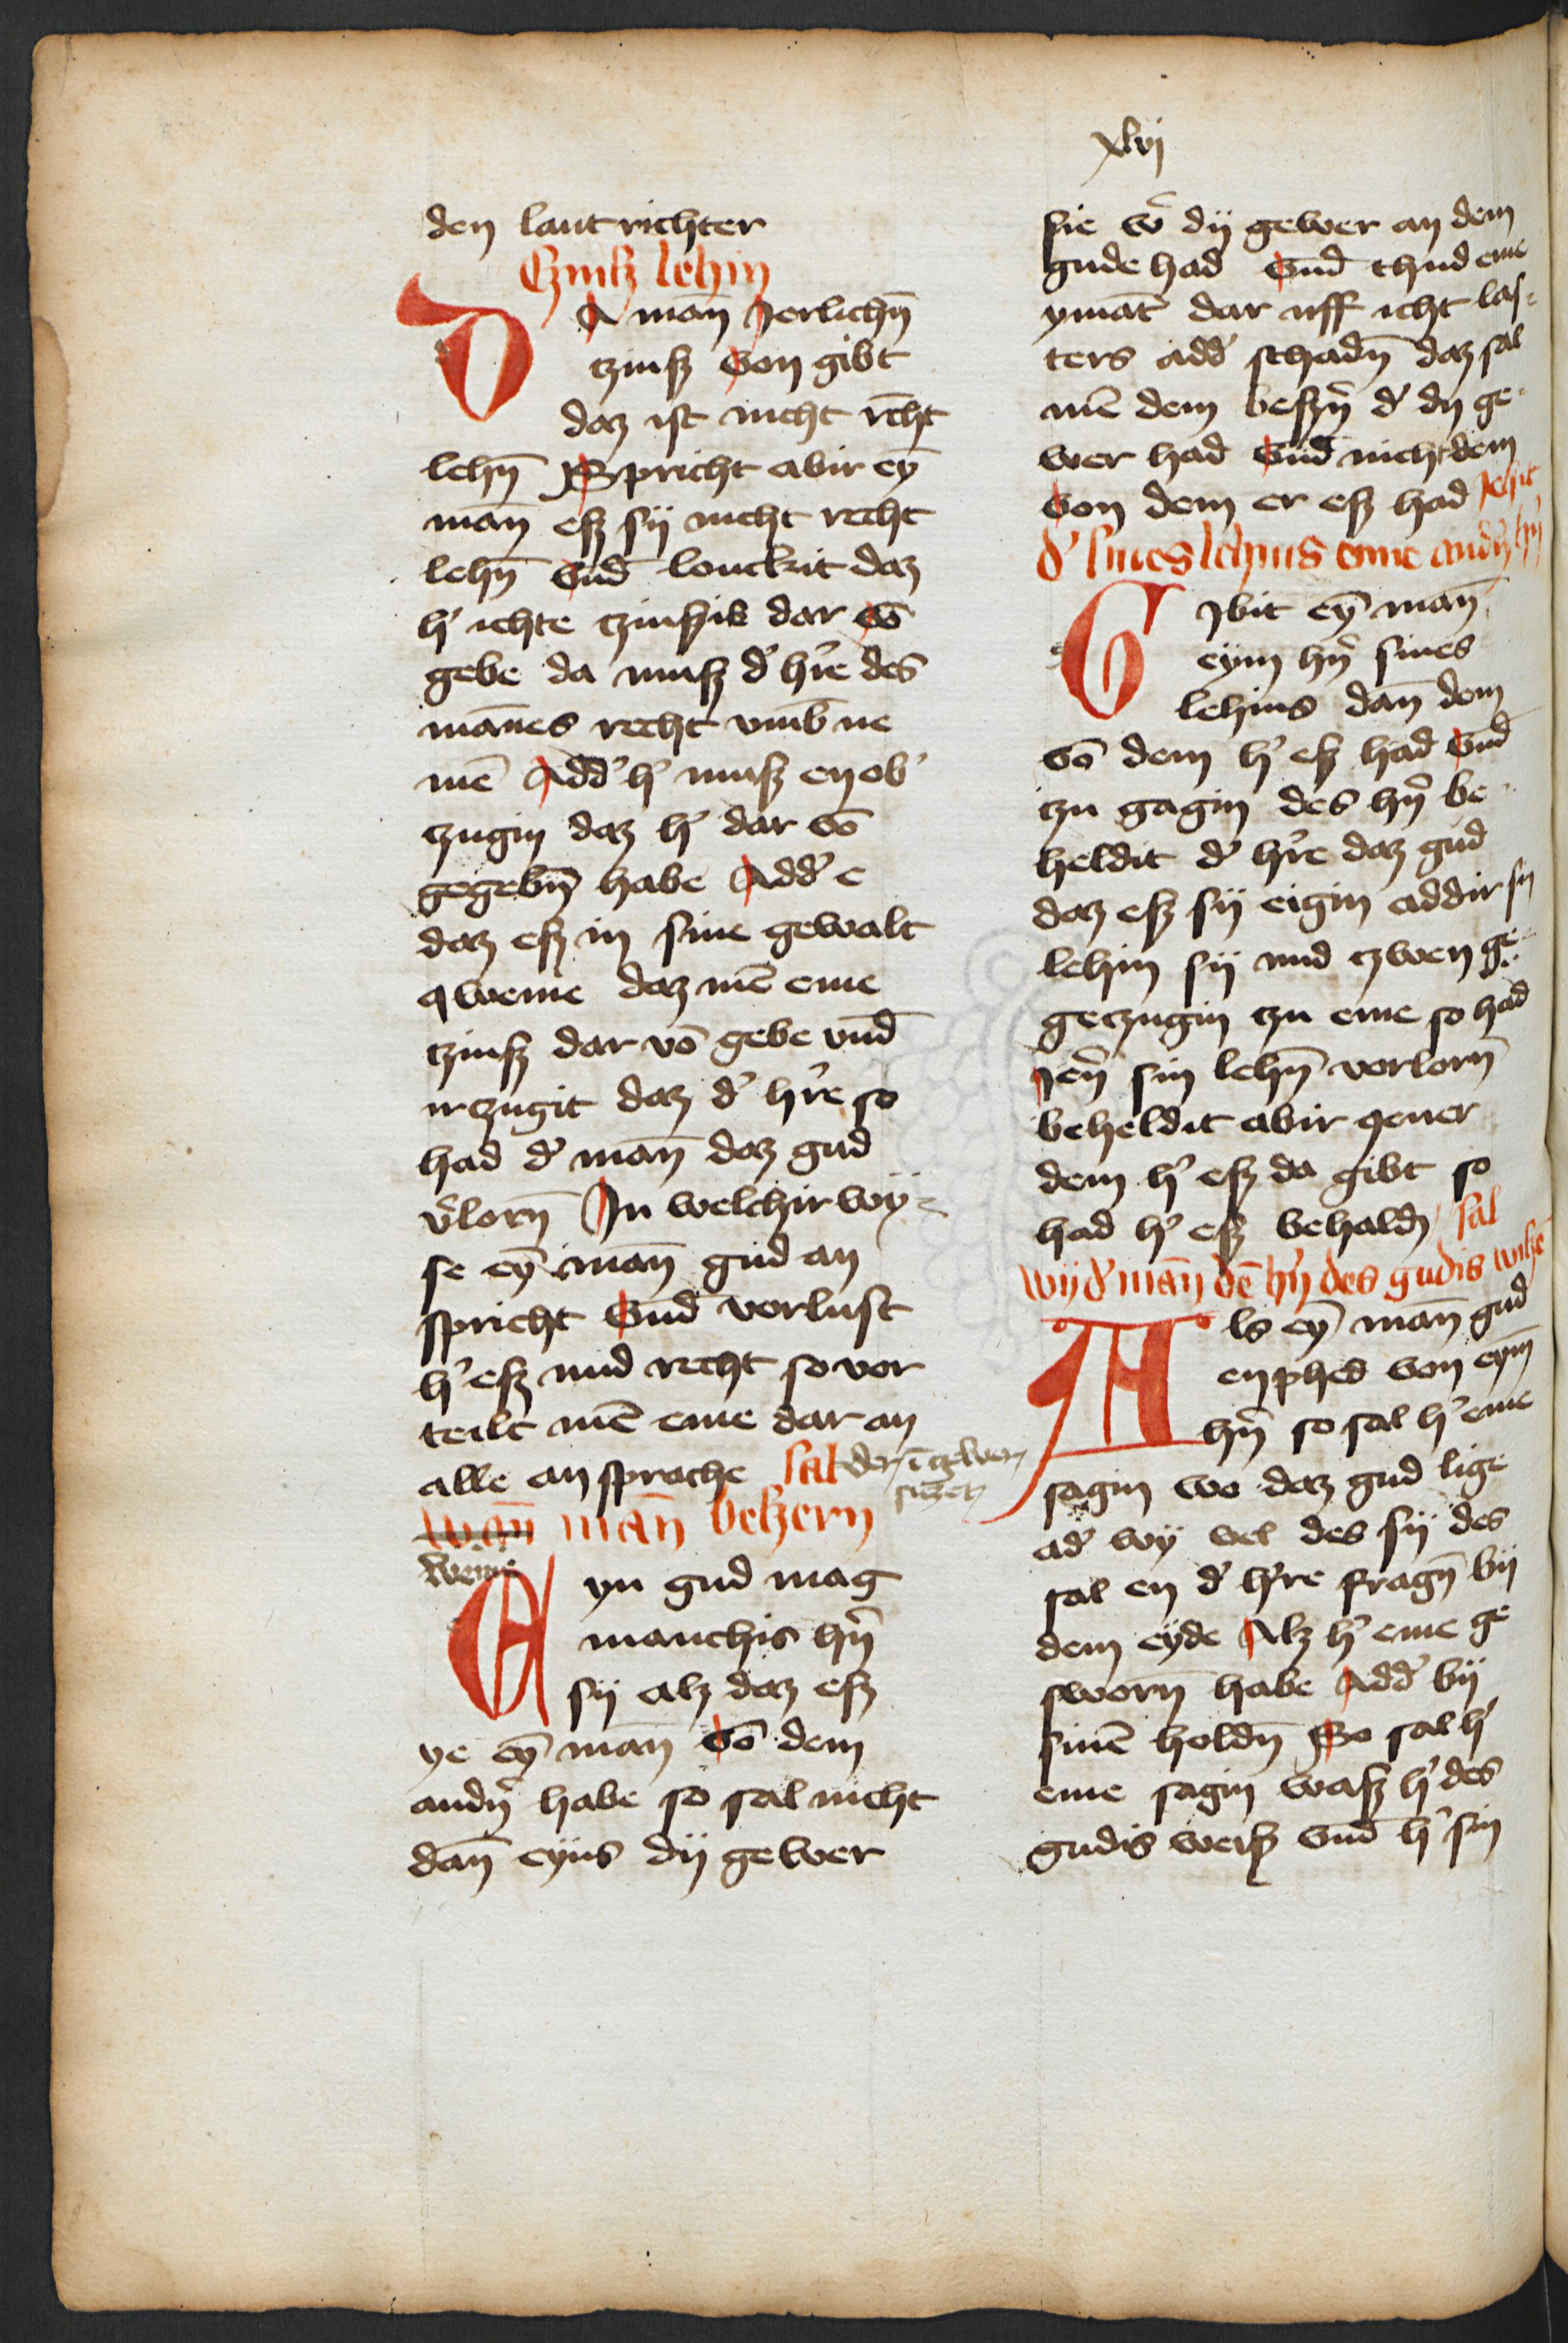 xlvj
den lantrichter
Czinsz lehin
DA man̄ Jerlichn̄
tzinsz von gibt
daz ist nicht recht
lehn̄ Spricht abir eȳ
man̄ esz sij nicht recht
lehn̄ vnd̄ louckit daz
h' ichte tzinsis dar vō
gebe da musz d' h're des
mānes recht vmb̄ ne
mē Add' h' musz en ob'
tzugin daz h' dar vō
gegebn̄ habe Add' e
daz esz in sine gewalt
qweme daz mē eme
tzinsz dar vō gebe vnd̄
irzugit daz d' h're so
had d' man̄ daz gud
v'lorn̄ In welchir wÿ-
se eȳ man̄ gud an
spricht vnd̄ vorlust
h' esz mid recht so vor
teilt mē eme dar an
alle an sprache sal der ī gewer
siczen
wan̄ man̄ beszern
weme
Eyn gud mag
manchis hn̄'
sij alz daz esz
ye eȳ man̄ vō dem
andn̄' habe so sal nicht
dan̄ eyns dij gewer
sie w' dij gewer an dem
gude had vnd̄ thud eme
ymāt dar uff icht las-
ters add' schadn̄ daz sal
mē dem beszn̄' d' dij ge-
wer had vnd̄ nicht dem
von dem er esz had
d' sines lehins eme andn̄' hn̄'
Gibit eȳ man̄
eym hn̄' sines
lehins dan̄ dem
vō dem h' esz had vnd̄
tzu gagin des hn̄' be-
heldit d' h're daz gud
daz esz sij eigin addir sij
lehin sij mid tzwen ge-
getzugin tzu eme so had
Jen̄' sin lehn̄ vorlorn̄
beheldit abir gener
dem h' esz da gibt so
had h' esz behaldn̄ sal
wij d' man̄ dē hn̄' des gudis wisze
Als eȳ man̄ gud
enphed von eym̄
hn̄' so sal h' eme
sagin wo daz gud lige
ad' wÿ vel des sij des
sal en d' h're fragn̄ bij
dem eyde Alz h' eme ge
sworn̄ habe Add' bij
sinē holdn̄ So sal h'
eme sagin wasz h' des
gudis weisz vnd̄ h' sin